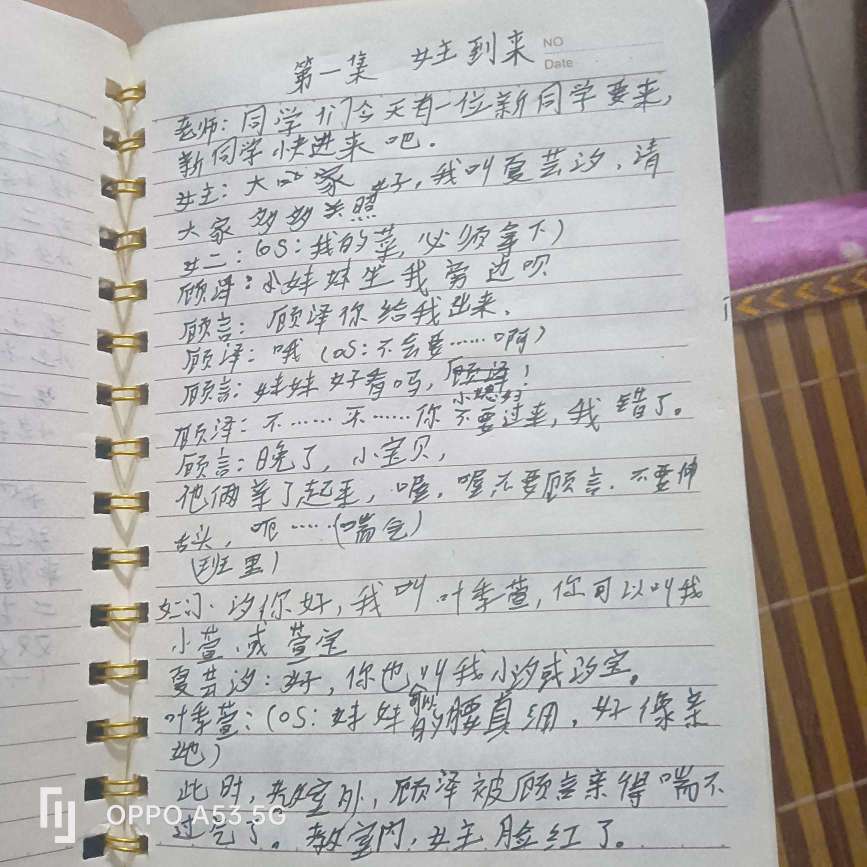 第一集 女主到来
NO
Date
老师：同学们今天有一位新同学要来，
新同学快进来吧．
女主：大家好，我叫夏芸汐．请
大家多多关照
女二：（OS：我的菜，必须拿下）
顾泽：小妹妹坐我旁边呗
顾言：顾泽你给我出来．
顾泽：哦（OS：不会要……啊）
顾言：妹妹好看吗，小媳妇！
顾泽：不……不……你不要过来，我错了。
顾言：晚了，小宝贝，
他俩亲了起来，喔，喔，不要顾言．不要伸
舌头，呃……（喘气）
（班里）
女二：小汐你好，我叫叶季萱，你可以叫我
小萱或萱宝
夏芸汐：好，你也可以叫我小汐或汐宝。
叶季萱：（OS：妹妹的腰真细，好像亲
她）
此时，教室外，顾泽被顾言亲得喘不
过气了。教室内，女主脸红了。
OPPO A53 5G